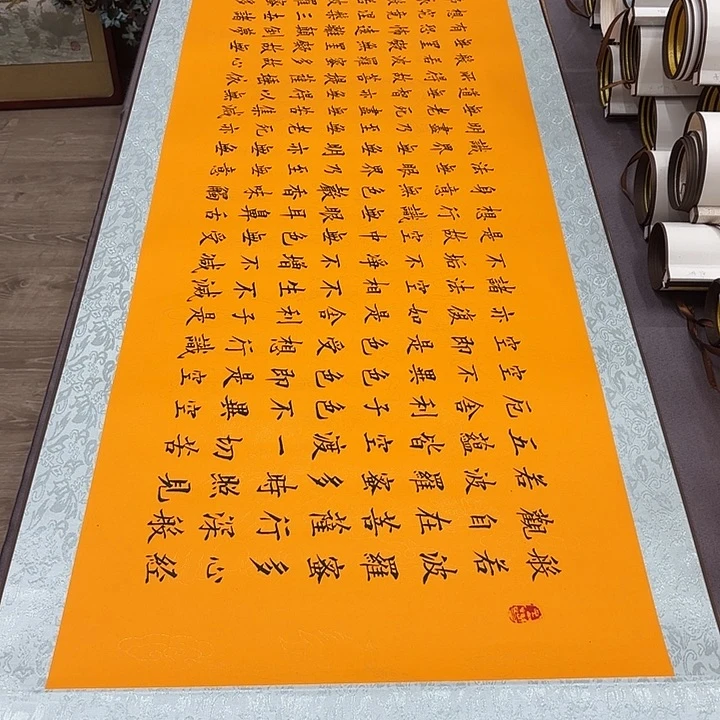 般若波羅蜜多心經
觀自在菩薩行深般
若波羅蜜多時照見
五蘊皆空渡一切苦
厄舍利子色不異空
空不異色色即是空
空即是色受想行識
亦復如是舍利子是
諸法空相不生不滅
不垢不淨不增不減
是故空中無色無受
想行識無眼耳鼻舌
身意無色聲香味觸
法無眼界乃至無意
識界無無明亦無無
明盡乃至無老死亦
無老死盡無苦集滅
道無智亦無得以無
所得故菩提薩埵依
般若波羅蜜多故心
無罣礙無罣礙故無
有恐怖遠離顛倒夢
想究竟涅槃三世諸